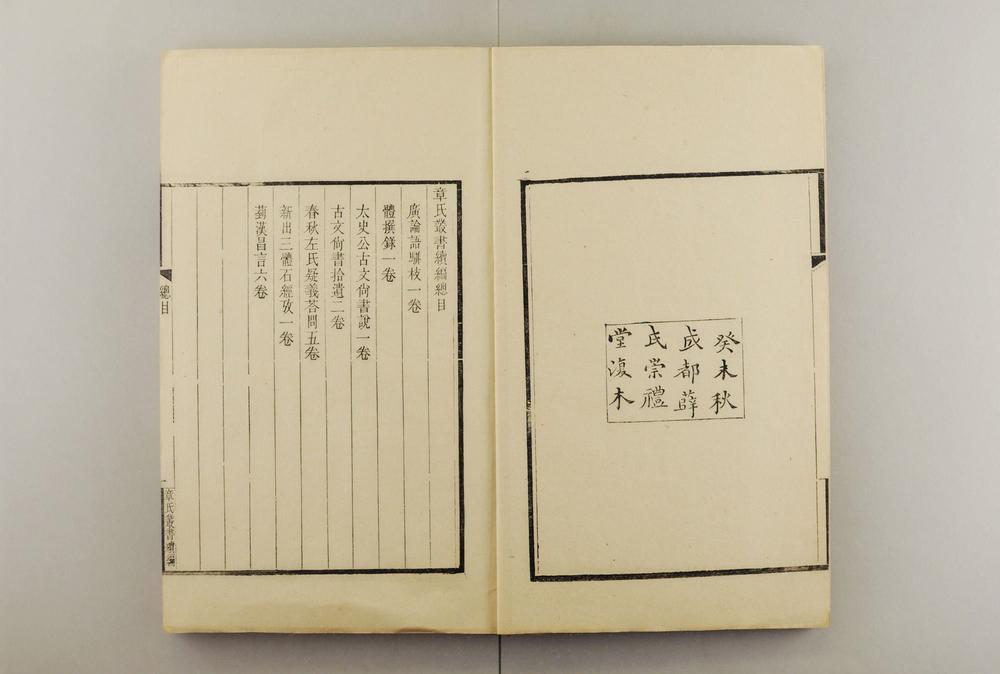 癸未秋
成都薛
氏崇禮
堂復木
章氏叢書續編總目
廣論語駢枝一卷
體撰錄一卷
太史公古文尙書說一卷
古文尙書拾遺二卷
春秋左氏疑義荅問五卷
新出三體石經攷一卷
菿漢昌言六卷
總目
一
章氏叢書續編